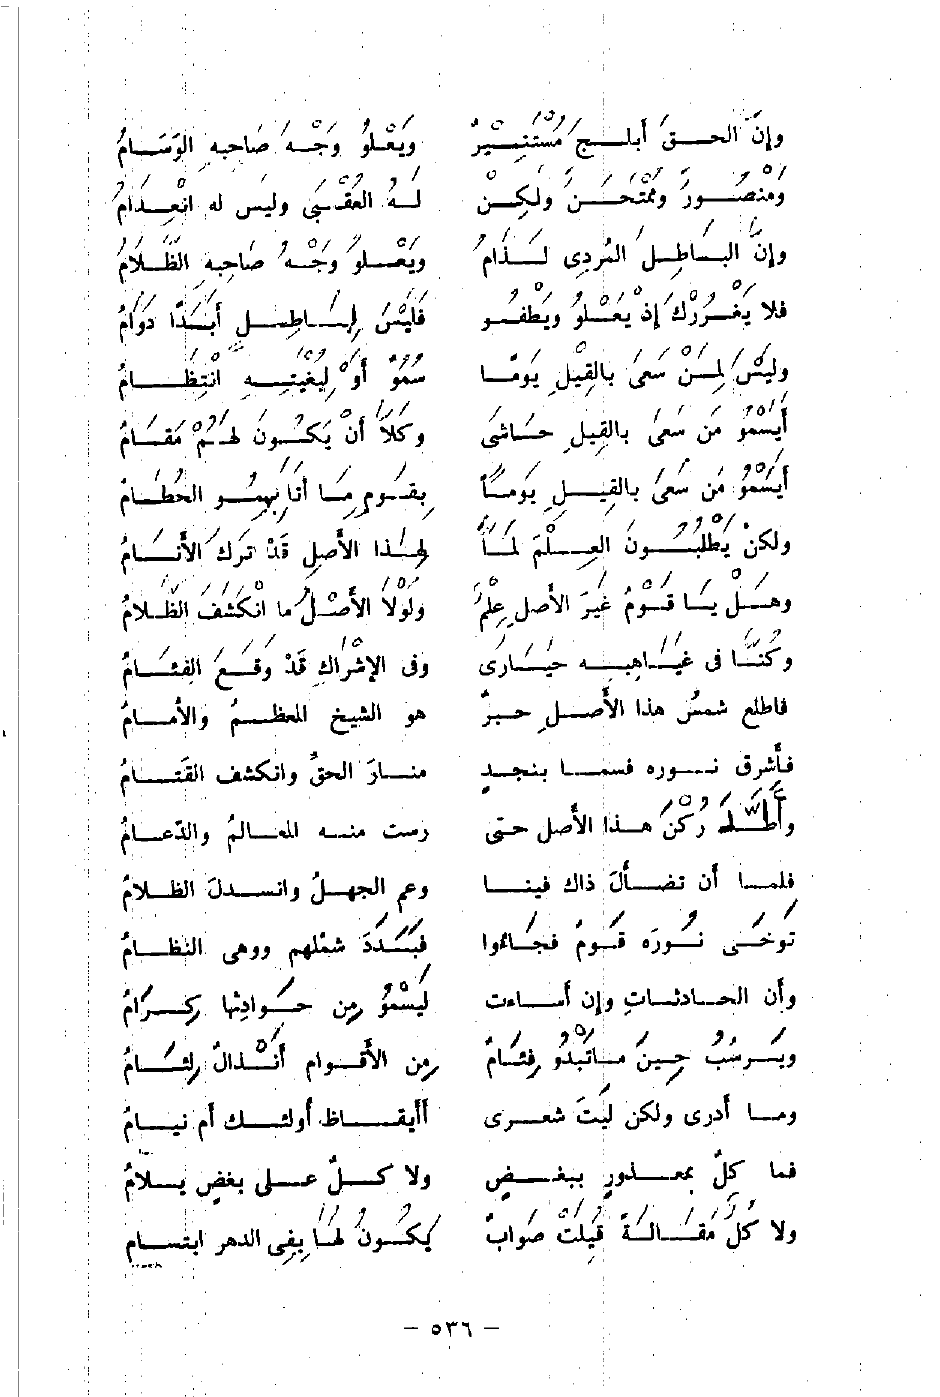 وإنَّ الحـق أبلـج مُسْتَنِيـرٌ ويَعْلُو وَجْهَ صَاحبِهِ الوَسَامُ
ومَنْصُورٌ ومُمْتَحَنٌ ولكِنْ لـه العُقْبَى وليس له انْعِدَامُ
وإنَّ الباطِلَ المُردِى لَذَامٌ ويَعْلو وَجْهَ صَاحِبِهِ الظَّلَامُ
فلا يَغْرُرْكَ إنْ يَعْلُو ويَطْفُو فَلَيْسَ لِبَاطِلٍ أبَدًا دَوَامُ
وليْسَ لِمَنْ سَعَى بالقِيْلِ يَومًا سُمُوٌ أوْ لِبُغْيَتِـهِ انْتِظَـامُ
أيَسْمُو مَن سَعَى بالقِيلِ حَاشَى وكَلاَّ أنْ يَكُونَ لَهُمْ مَقَامُ
أيَسْمُو مَن سَعَى بالقِيلِ يَومـاً بِقَومٍ مَا أنَا بِهِمُو الحُطَامُ
ولكنْ يَطْلُبُونَ العِلْمَ لَمَّا لِهذا الأصلِ قَدْ تَرَكَ الأنَامُ
وهَلْ يَا قَوْمُ غيرَ الأصلِ عِلْمٌ ولَوْلَا الأصْلُ ما انْكَشَفَ الظَّلامُ
وكُنَّا فى غَيَاهِبِهِ حَيَارَى وفى الإشْرَاكِ قَدْ وقَعَ الفِئَامُ
فاطلع شمسُ هذا الأصلِ حبرٌ هو الشيخ المعظمُ والأمامُ
فأشرق نـوره فسمـا بنجـدٍ منـارَ الحقُّ وانكشف القَتَـامُ
رُكْنَ هـذا الأصل حتى رست منـه المعـالمُ والدّعـامُ
فلمـا أن تضـألَ ذاك فينـا وعم الجهـلُ وانسدلَ الظلامُ
توخى نُورَه قومٌ فجاءوا فَبَدَّدَ شمْلهم ووهى النظـامُ
وأن الحـادثـاتِ وإن أسـاءت ليَسْمُو مِن حَوادِثها كِرَامُ
ويرسُبُ حِينَ مـا تَبْدُو فِئَامٌ مِن الأقـوام أنْـذالٌ لِئَـامُ
ومـا أدرى ولكن ليْتَ شعـرى أأيقـاظ أولئـك أم نيـامُ
فما كلٌ بمعـذورٍ ببغـضٍ ولا كـلٌ عـلى بغضٍ يـلامُ
ولا كُلُّ مَقَـالـةٌ قِيْلَتْ صَوابٌ يَكُونُ لَهَا بِفِى الدهر ابتسـام
– ٥٣٦ –